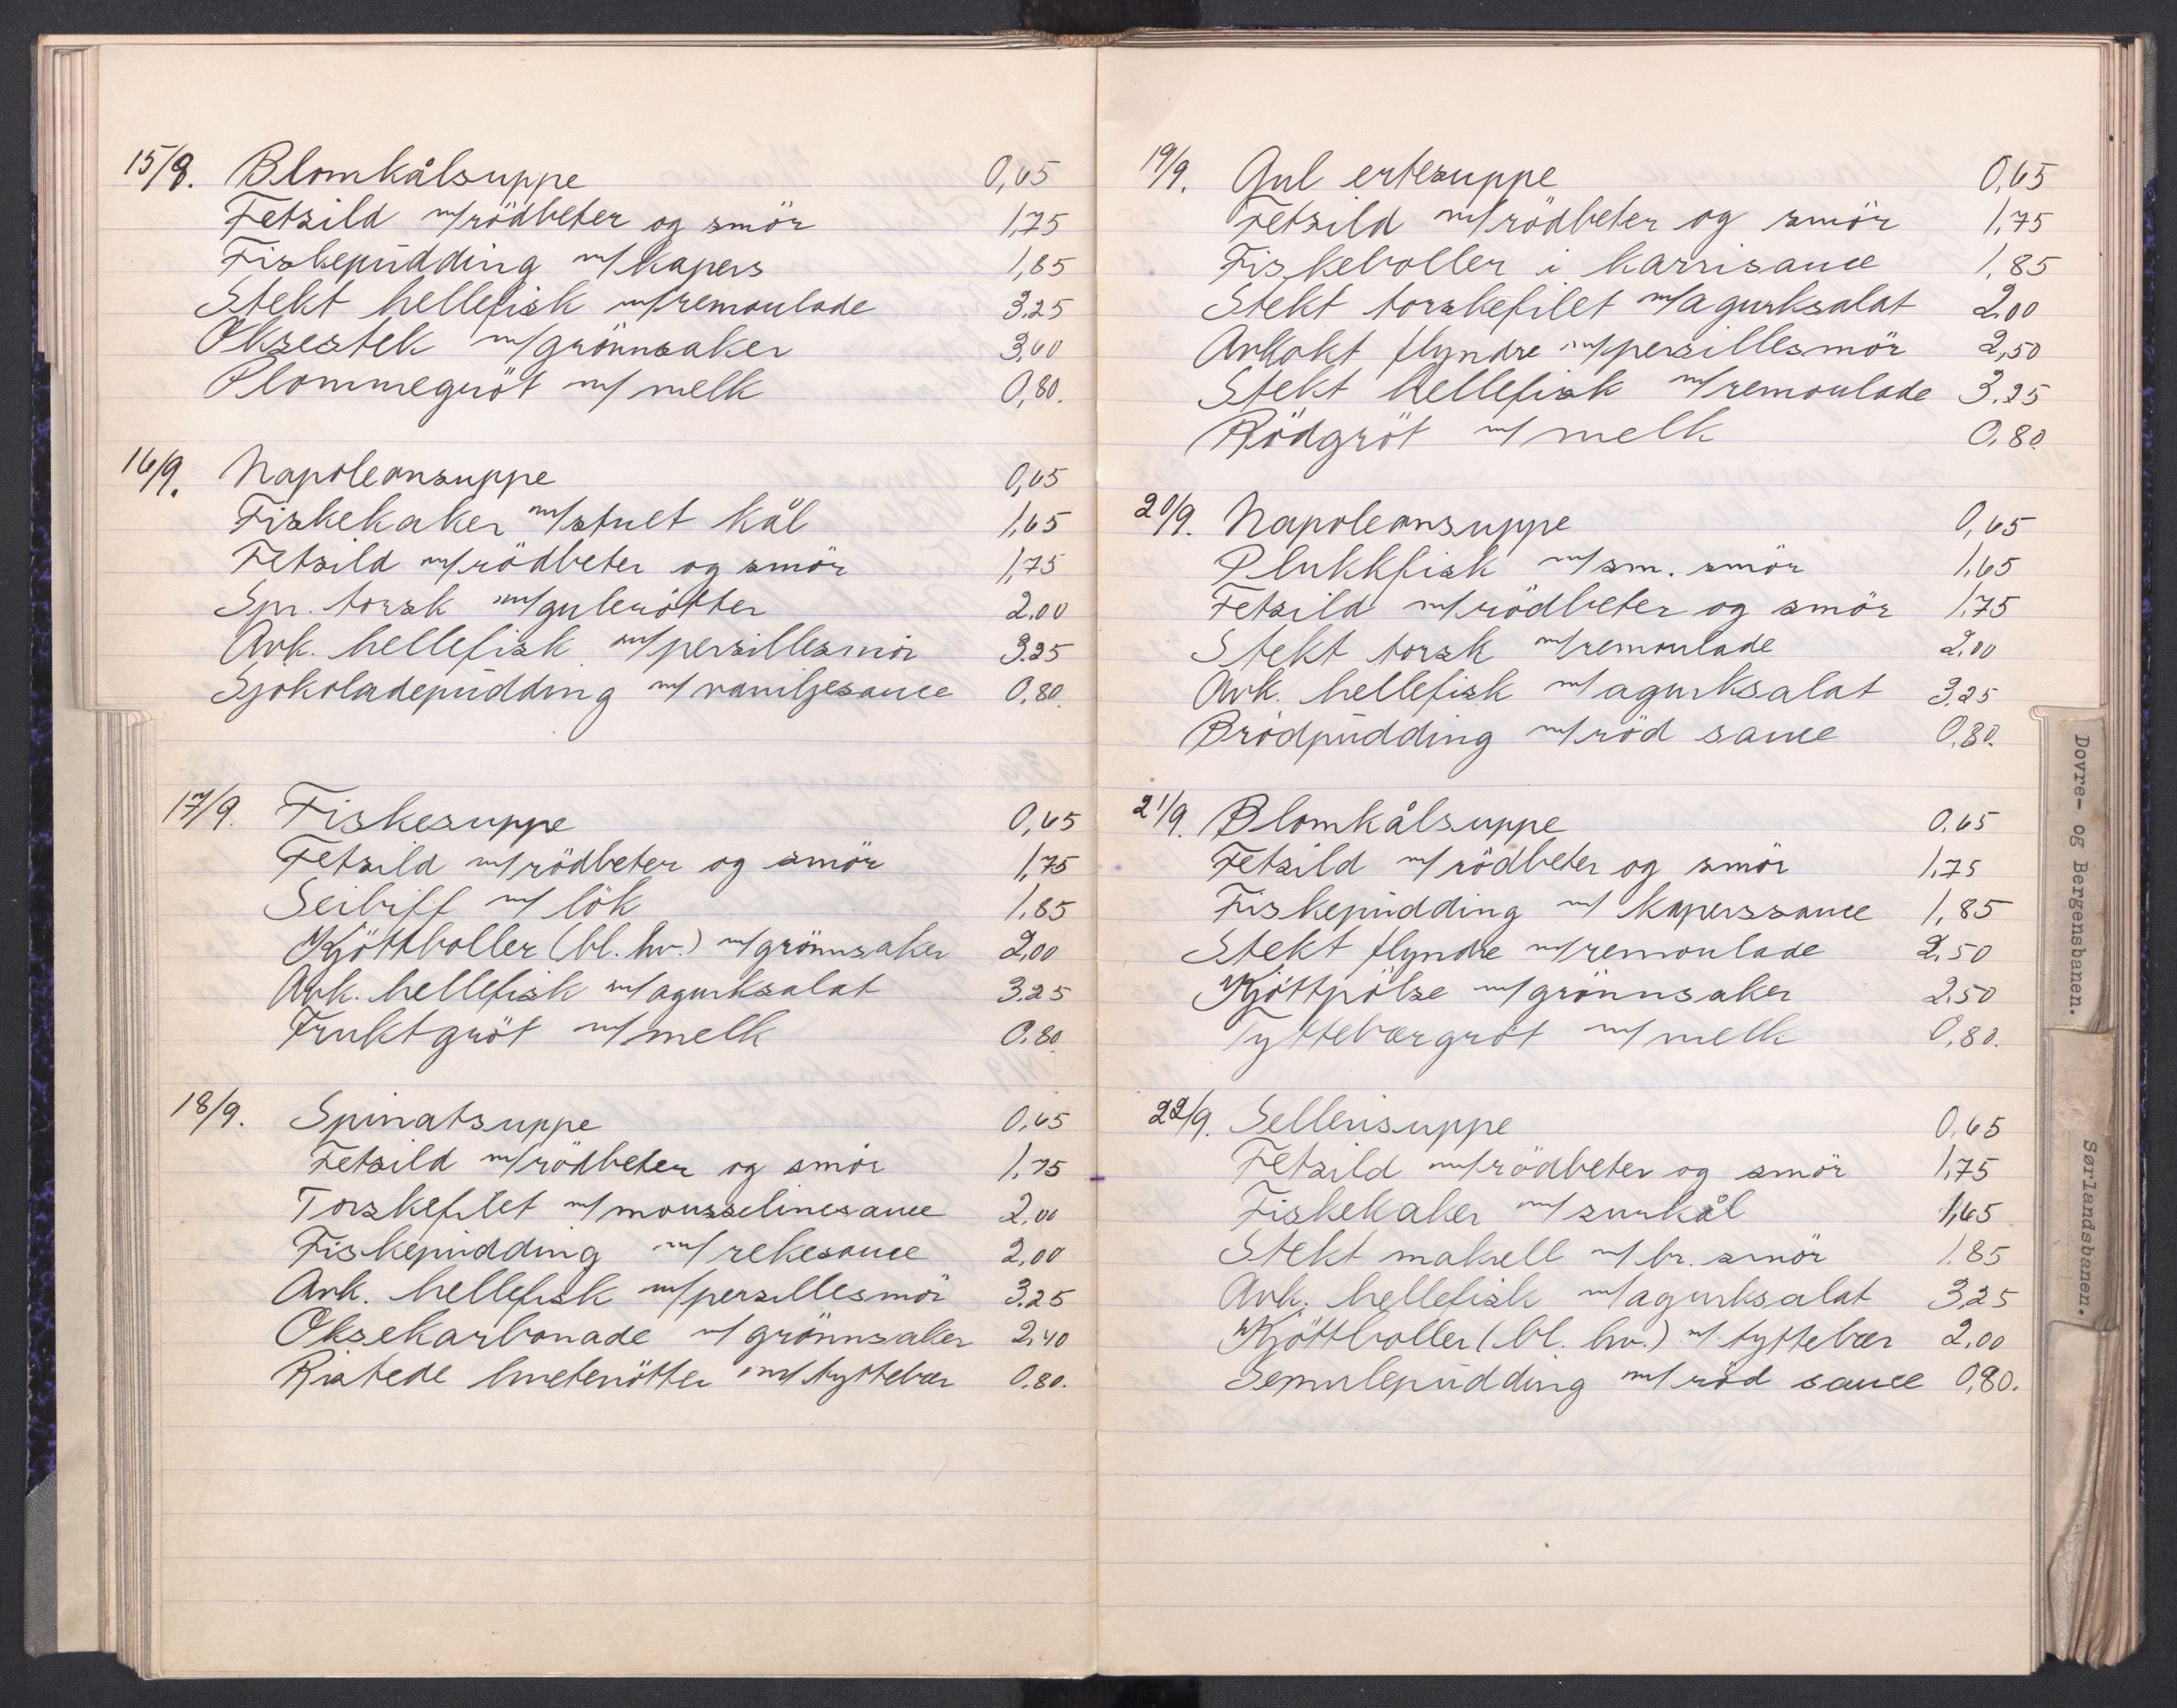 15/9. Blomkålsuppe 0,65
Fetsild m/rödbeter og smör 1,75
Fiskepudding m/kapers 1,85
Stekt hellefisk m/remoulade 3.25
Oksestek m/grönnsaker 3,60
Plommegröt m/ melk 0,80.
16/9. Napoleonsuppe 0,65
Fiskekaker m/stuet kål 1,65
Fetsild m/rödbeter og smör 1,75
Spr. torsk m/gulerötter 2.00
Avk. hellefisk m/persillesmör 3.25
Sjokoladepudding m/vaniljesauce 0,80.
17/9. Fiskesuppe 0,65
Fetsild m/rödbeter og smör 1,75
Seibiff m/ lök 1,85
Kjöttboller (bl. hv.) m/grönnsaker 2,00
Avk. hellefisk m/agurksalat 3.25
Fruktgröt m/melk 0.80
18/9. Spinatsuppe 0,65
Fetsild m/rödbeter og smör 1,75
Torskefilet m/mousselinesauce 2,00
Fiskepudding m/rekesauce 2,00
Avk. hellefisk m/persillesmör 3.25
Oksekarbonade m/ grönnsaker 2,40
Ristede hvetenötter m/tyttebær 0.80.
19/9. Gul ertesuppe 0,65
Fetsild m/rödbeter og smör 1,75
Fiskeboller i karrisauce 1,85
Stekt torskefilet m/agurksalat 2.00
Avkokt flyndre m/persillesmör 2,50
Stekt hellefisk m/remoulade 3.25
Rödgröt m/ melk 0.80.
20/9. Napoleonsuppe 0,65
Plukkfisk m/sm. smör 1,65
Fetsild m/rödbeter og smör 1,75
Stekt torsk m/remoulade 2,00
Avk. hellefisk m/agurksalat 3,25
Brödpudding m/röd sauce 0,80.
21/9. Blomkålsuppe 0.65
Fetsild m/rödbeter og smör 1,75
Fiskepudding m/ kaperssauce 1,85
Stekt flyndre m/remoulade 2,50
Kjöttpölse m/grönnsaker 2.50
Tyttebærgröt m/melk 0,80.
22/9. Sellerisuppe 0,65
Fetsild m/rödbeter og smör 1,75
Fiskekaker m/surkål 1,65
Stekt makrell m/br. smör 1.85
Avk. hellefisk m/agurksalat 3,25
Kjöttboller (bl. hv.) m/ tyttebær 2,00
Semulepudding m/röd sauce 0,80.
Dovre- og Bergensbanen.
Sørlandsbanen.